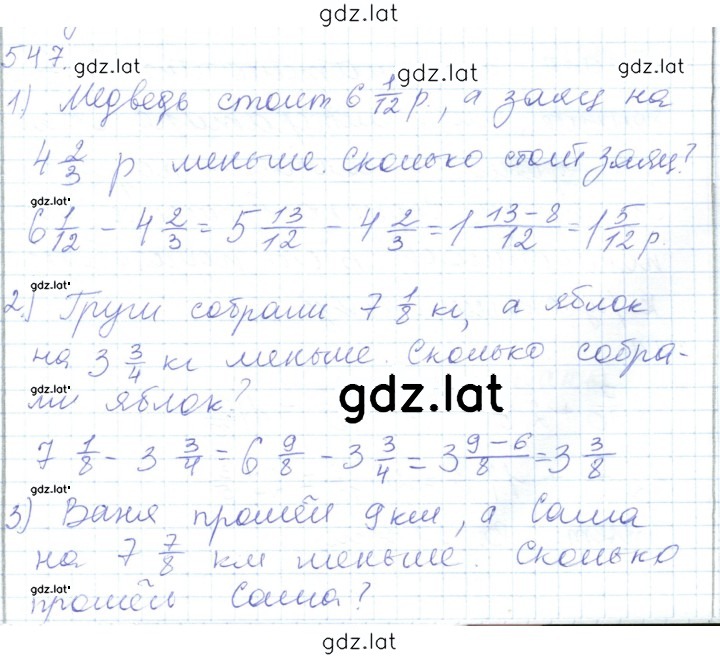 gdz.lat
547.
gdz.lat
gdz.lat
1) Медведь стоит 6 1/12 р., а заяц на
4 2/3 р меньше. Сколько стоит заяц?
gdz.lat
6 1/12 - 4 2/3 = 5 13/12 - 4 2/3 = 1 13-8/12 = 1 5/12 р.
gdz.lat
2.) Груш собрали 7 1/8 кг, а яблок
gdz.lat
на 3 3/4 кг меньше. Сколько собра-
gdz.lat
ли яблок?
gdz.lat
7 1/8 - 3 3/4 = 6 9/8 - 3 3/4 = 3 9-6/8 = 3 3/8
gdz.lat
3) Ваня прошёл 9 км, а Саша
на 7 7/8 км меньше. Сколько
gdz.lat
прошёл Саша?
gdz.lat